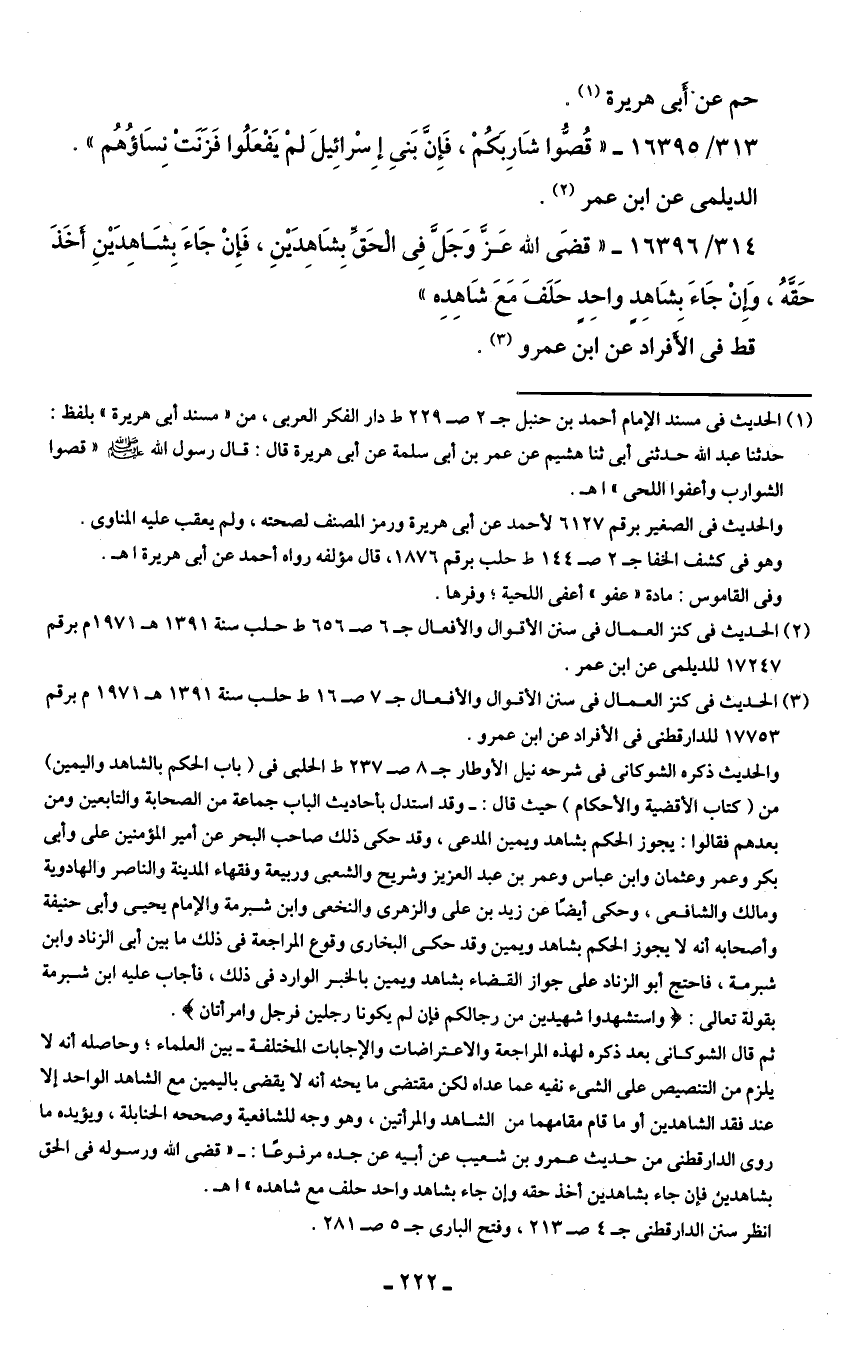 حم عن أَبى هريرة (١) .
٣١٣/ ١٦٣٩٥ ـ « قُصُّوا شَارِبَكُمْ ، فَإِنَّ بَنىِ إِسْرائِيلَ لمْ يَفْعَلُوا فَزَنَتْ نِسَاؤُهُم » .
الديلمى عن ابن عمر (٢) .
٣١٤/ ١٦٣٩٦ ـ « قضَى الله عَـزَّ وَجَلَّ فِى الْحَقِّ بِشَاهِدَيْنِ ، فَإِنْ جَاءَ بِشَـاهِدَيْنِ أَخَذَ
حَقَّهُ ، وَإِنْ جَاءَ بِشَاهِدٍ واحِدٍ حَلَفَ مَعَ شَاهِدِهِ »
قط فى الأَفراد عن ابن عمرو (٣) .
(١) الحديث فى مسند الإمام أحمد بن حنبل جـ ٢ صـ ٢٢٩ ط دار الفكر العربى ، من « مسند أبى هريرة » بلفظ :
حدثنا عبد الله حـدثنى أبى ثنا هشيم عن عمر بن أبى سلمة عن أبى هريرة قال : قـال رسول الله ﷺ « قصوا
الشوارب وأعفوا اللحى » ا هـ .
والحديث فى الصغير برقم ٦١٢٧ لأحمد عن أبى هريرة ورمز المصنف لصحته ، ولم يعقب عليه المناوى .
وهو فى كشف الخفا جـ ٢ صـ ١٤٤ ط حلب برقم ١٨٧٦، قال مؤلفه رواه أحمد عن أبى هريرة ا هـ .
وفى القاموس : مادة « عفو » أعفى اللحية ؛ وفرها .
(٢) الحـديث فى كنز العـمـال فى سنن الأقـوال والأفعـال جـ ٦ صـ ٦٥٦ ط حـلـب سنة ١٣٩١ هـ ١٩٧١م برقم
١٧٢٤٧ للديلمى عن ابن عمر .
(٣) الحـديث فى كنز العـمـال فى سنن الأقـوال والأفـعـال جـ ٧ صـ ١٦ ط حلـب سنة ١٣٩١ هـ ١٩٧١ م برقم
١٧٧٥٣ للدارقطنى فى الأفراد عن ابن عمرو .
والحديث ذكره الشوكانى فى شرحه نيل الأوطار جـ ٨ صـ ٢٣٧ ط الحلبى فى ( باب الحكم بالشاهد واليمين)
من ( كتاب الأقضية والأحكام ) حيث قال : ـ وقد استدل بأحاديث الباب جماعة من الصحابة والتابعين ومن
بعدهم فقالوا : يجوز الحكم بشاهد ويمين المدعى ، وقد حكى ذلك صاحب البحر عن أمير المؤمنين على وأبى
بكر وعمر وعثمان وابن عباس وعمر بن عبد العزيز وشريح والشعبى وربيعة وفقهاء المدينة والناصر والهادوية
ومالك والشافـعى ، وحكى أيضًا عن زيد بن على والزهرى والنخعى وابن شـبرمة والإمام يحيـى وأبى حنيفة
وأصحابه أنه لا يجوز الحكم بشاهد ويمين وقد حكـى البخارى وقوع المراجعة فى ذلك ما بين أبى الزناد وابن
شبرمـة ، فاحتج أبو الزناد على جواز القـضاء بشاهد ويمين بالخبـر الوارد فى ذلك ، فأجاب عليه ابن شـبرمة
بقولة تعالى : ﴿ واستشهدوا شهيدين من رجالكم فإن لم يكونا رجلين فرجل وامرأتان ﴾ .
ثم قال الشوكـانى بعد ذكره لهذه المراجعة والاعـتراضات والإجابات المختلفـة ـ بين العلماء ؛ وحاصله أنه لا
يلزم من التنصيص على الشىء نفيه عما عداه لكن مقتضى ما يحثه أنه لا يقضى باليمين مع الشاهد الواحد إلا
عند فقد الشاهدين أو ما قام مقامهما من الشـاهد والمرأتين ، وهو وجه للشافعية وصححه الحنابلة ، ويؤيده ما
روى الدارقطنى من حـديث عـمرو بن شـعيب عن أبـيه عن جـده مرفـوعًـا : ـ « قضى الله ورسـوله فى الحق
بشاهدين فإن جاء بشاهدين أخذ حقه وإن جاء بشاهد واحد حلف مع شاهده » ا هـ .
انظر سنن الدارقطنى جـ ٤ صـ ٢١٣ ، وفتح البارى جـ ٥ صـ ٢٨١ .
ـ ٢٢٢ ـ